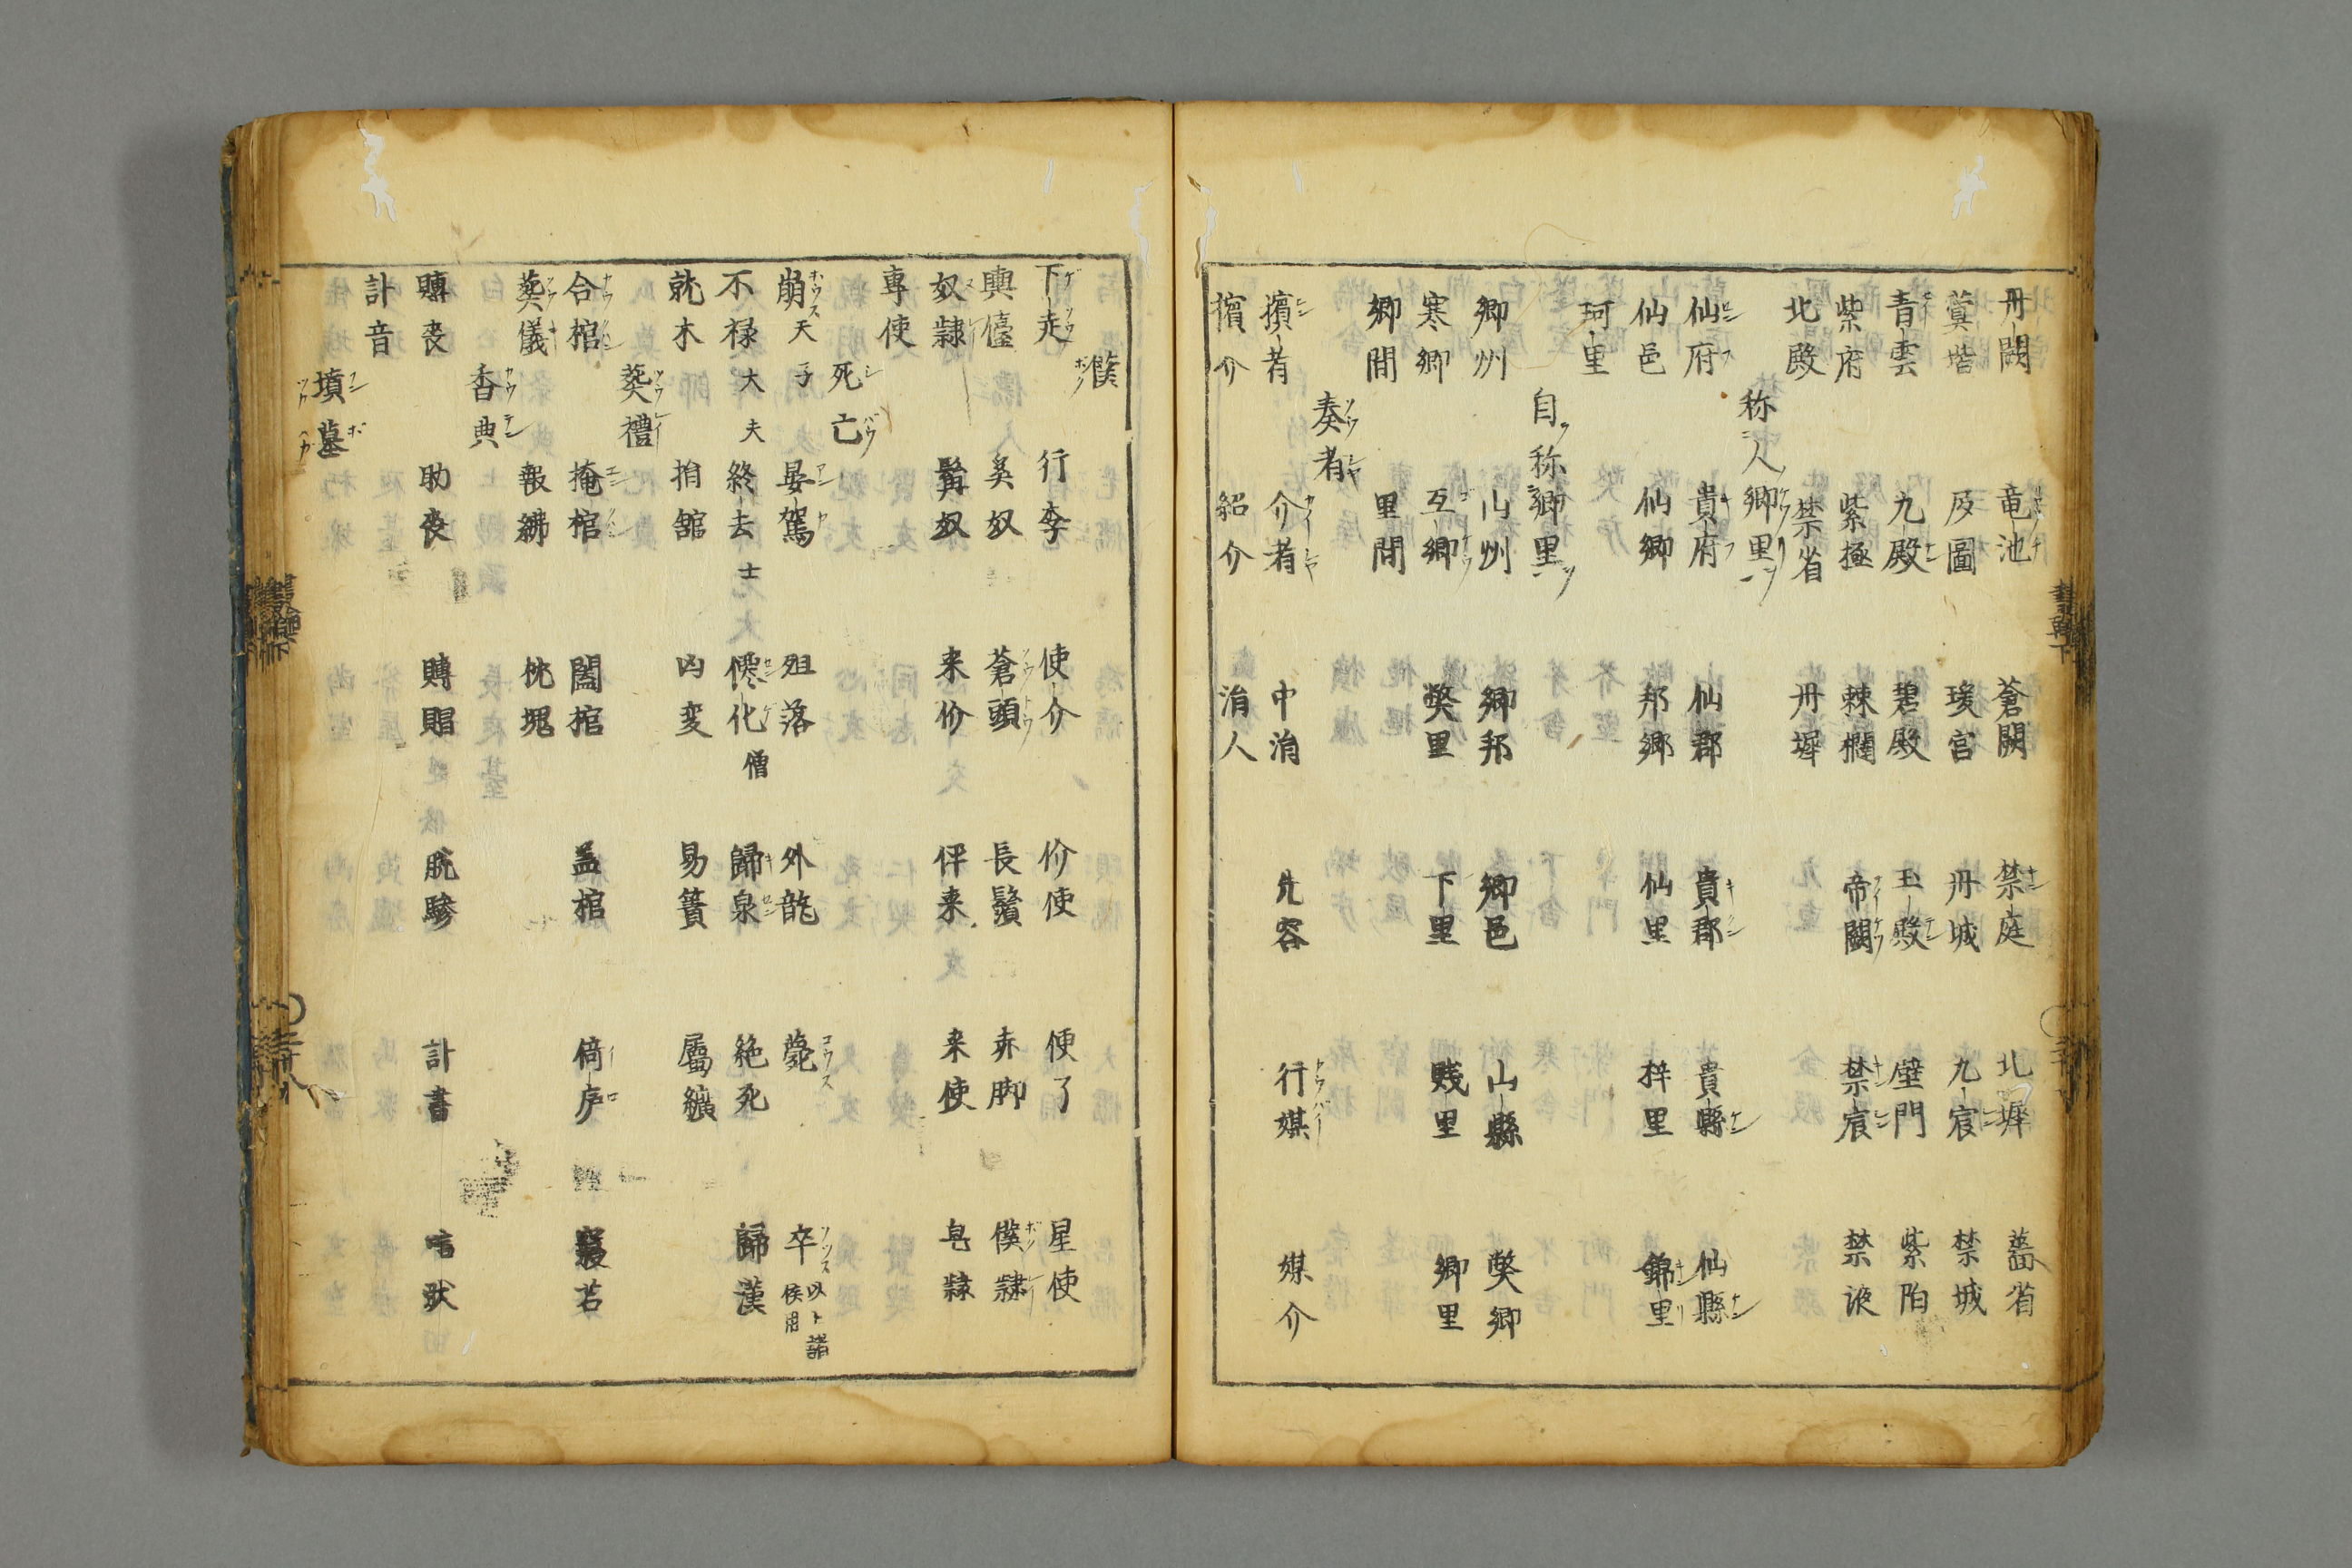 丹闕 竜池 蒼闕 禁庭 北墀 薔省
蓂堦 及圖 瑗宮 丹城 九宸 禁城
青雲 九殿 碧殿 玉殿 璧門 紫陌
紫府 紫極 棘欄 帝闕 禁宸 禁液
北殿 禁省 丹墀
称人卿里
仙府 貴府 仙郡 貴郡 貴縣 仙縣
仙邑 仙卿 邦郷 仙里 梓里 錦里
珂里
自称卿里
卿州 山州 卿邦 卿邑 山縣 獘卿
寒卿 互卿 獘里 下里 賤里 卿里
郷間 里間
奏者
擯者 介者 中消 先容 行媒 媒介
擯介 紹介 消人
僕
下走 行李 使介 价使 使了 星使
輿儓 奚奴 蒼頭 長鬚 赤脚 僕隷
奴隷 髯奴 来价 伻来 来使 皂隷
專使
死亡
崩天子 晏駕 殂落 外龍 薨 卒以下諸侯用
不禄大夫 終去士 僊化僧 歸泉 絶死 歸漢
就木 捐舘 凶変 易簀 屬纊
葬禮
合棺 掩棺 闔棺 盖棺 倚庐 寢苫
葬儀 報紼 枕塊
香典
賻喪 助喪 賻賵 脱驂 訃書 唁状
訃音
墳墓